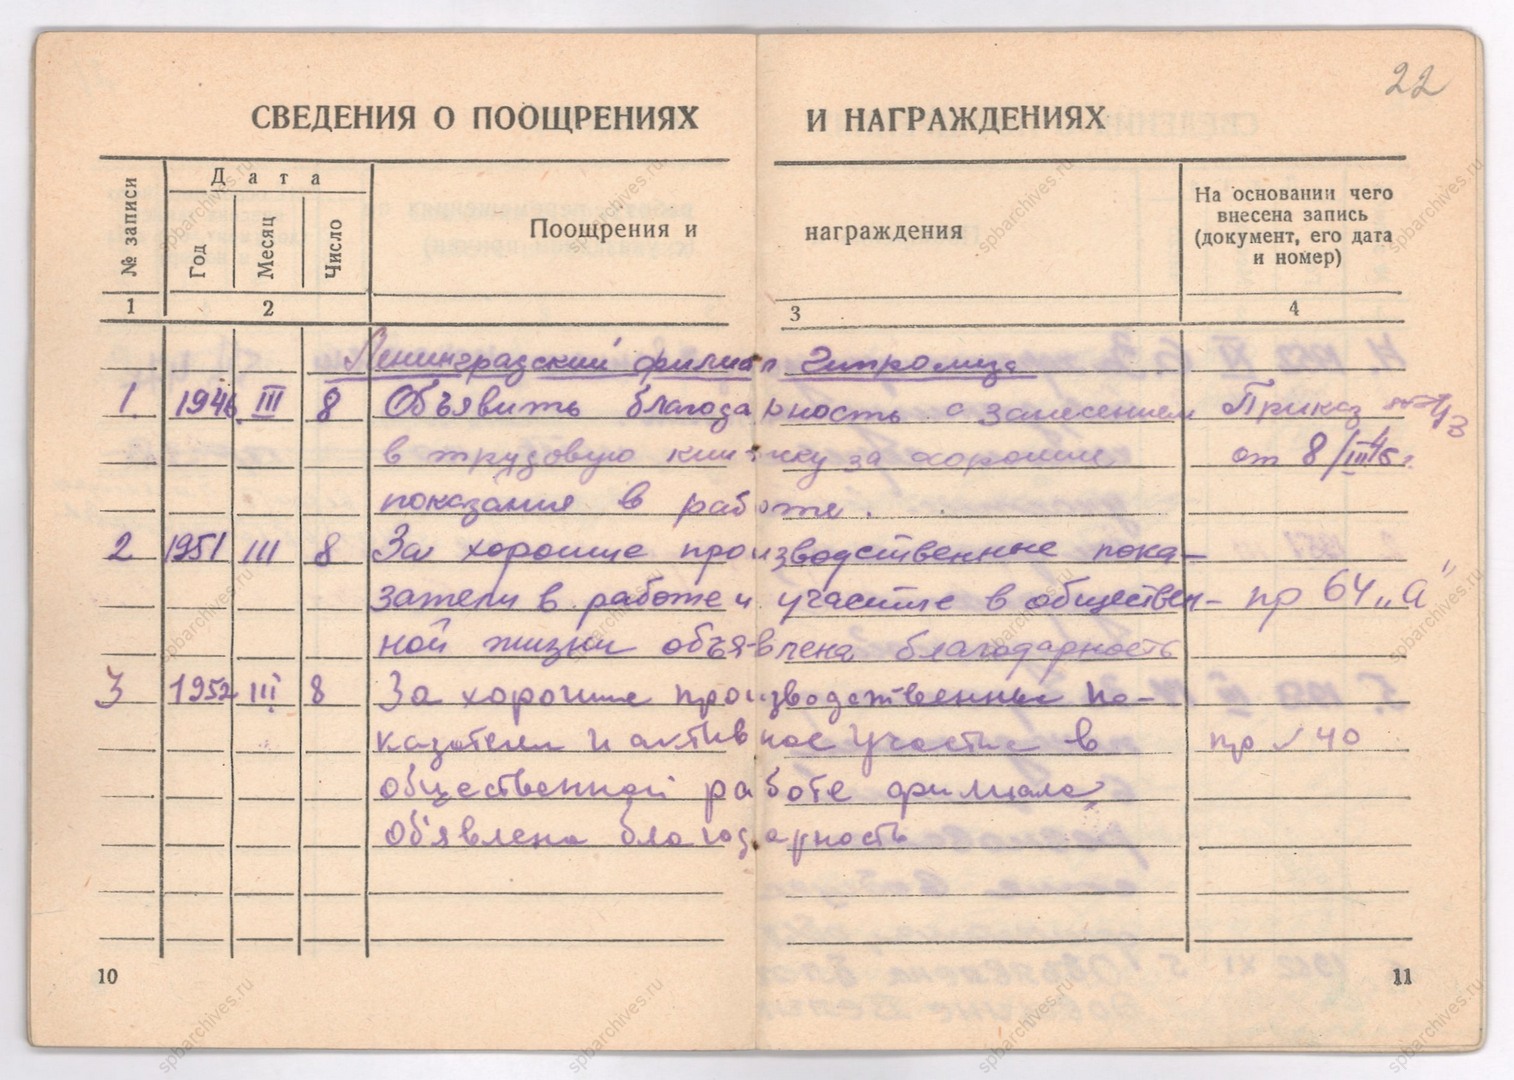 22
СВЕДЕНИЯ О ПООЩРЕНИЯХ И НАГРАЖДЕНИЯХ
№ записи
Дата
Год
Месяц
Число
Поощрения и награждения
На основании чего
внесена запись
(документ, его дата
и номер)
1 2 3 4
Ленинградский филиал
1. 1946 III 8 Объявить благодарность с занесением Приказ
в трудовую книжку за хорошие от 8/III
показания в работе.
2 1951 III 8 За хорошие производственные пока-
затели в работе и участие в обществен- пр 64 „а"
ной жизни объявлена благодарность
3 1952 III 8 За хорошие производственные по-
казатели и активное участие в пр № 40
общественной работе филиала
объявлена благодарность
10
11
spbarchives.ru